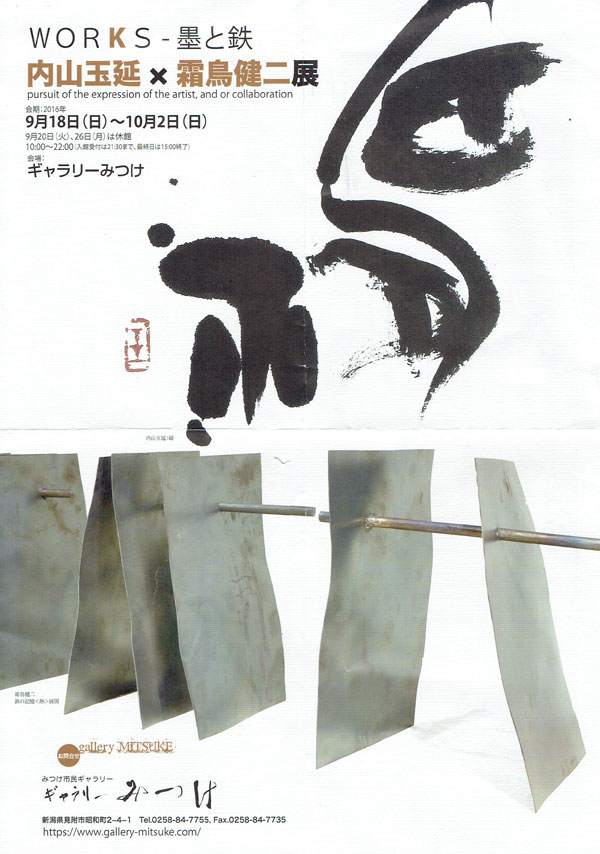 WORKS - 墨と鉄
内山玉延 × 霜鳥健二展
pursuit of the expression of the artist, and or collaboration
会期：2016年
9月18日（日）～10月2日（日）
9月20日（火）、26日（月）は休館
10:00～22:00（入館受付は21:30まで、最終日は15:00終了）
会場：
ギャラリーみつけ
霜鳥健二
鉄の記憶<熱>展開
お問合せ
gallery MITSUKE
みつけ市民ギャラリー
ギャラリーみつけ
新潟県見附市昭和町2-4-1 Tel.0258-84-7755, Fax.0258-84-7735
https://www.gallery-mitsuke.com/